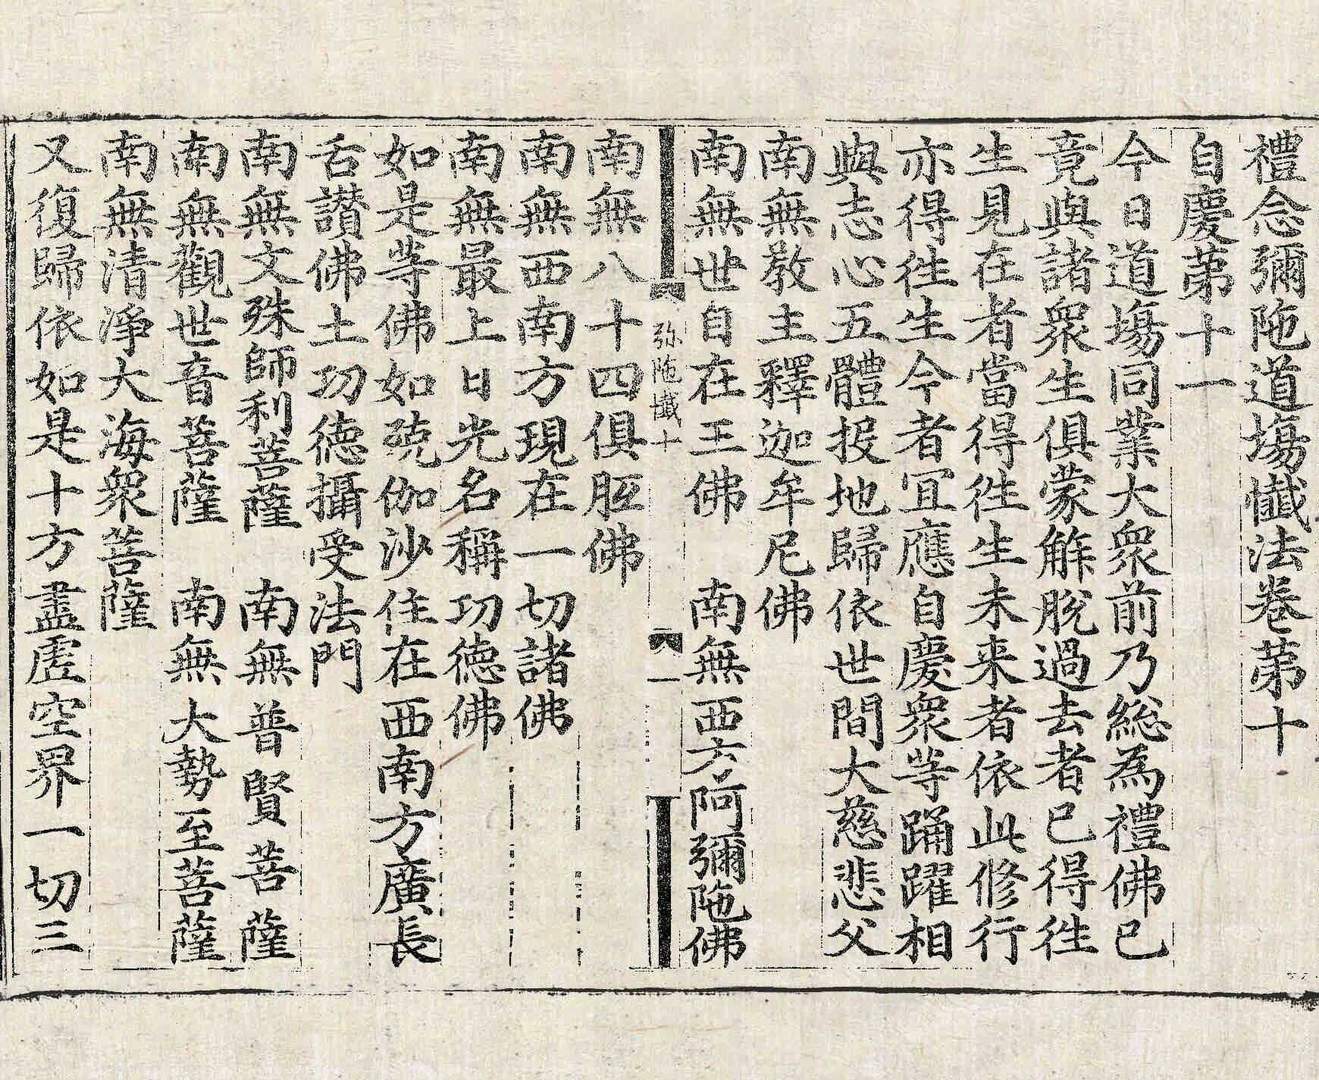 禮念彌陁道塲懺法卷苐十
自慶苐十一
今日道塲同業大衆前乃緫為禮佛已
竟與諸衆生俱蒙解脫過去者已得徃
生見在者當得徃生未来者依此修行
亦得徃生今者冝應自慶衆等踊躍相
與志心五體投地歸依世間大慈悲父
南無敎主釋迦牟尼佛
南無世自在王佛　南無西六阿彌陁佛
弥陁懺十　一
南無八十四俱胝佛
南無西南方現在一切諸佛
南無最上日光名稱功德佛
如是等佛如殑伽沙住在西南方廣長
舌讃佛土功德攝受法門
南無文殊師利菩薩　南無普賢菩薩
南無觀世音菩薩　南無大勢至菩薩
南無清淨大海衆菩薩
又復歸依如是十方盡虗空界一切三